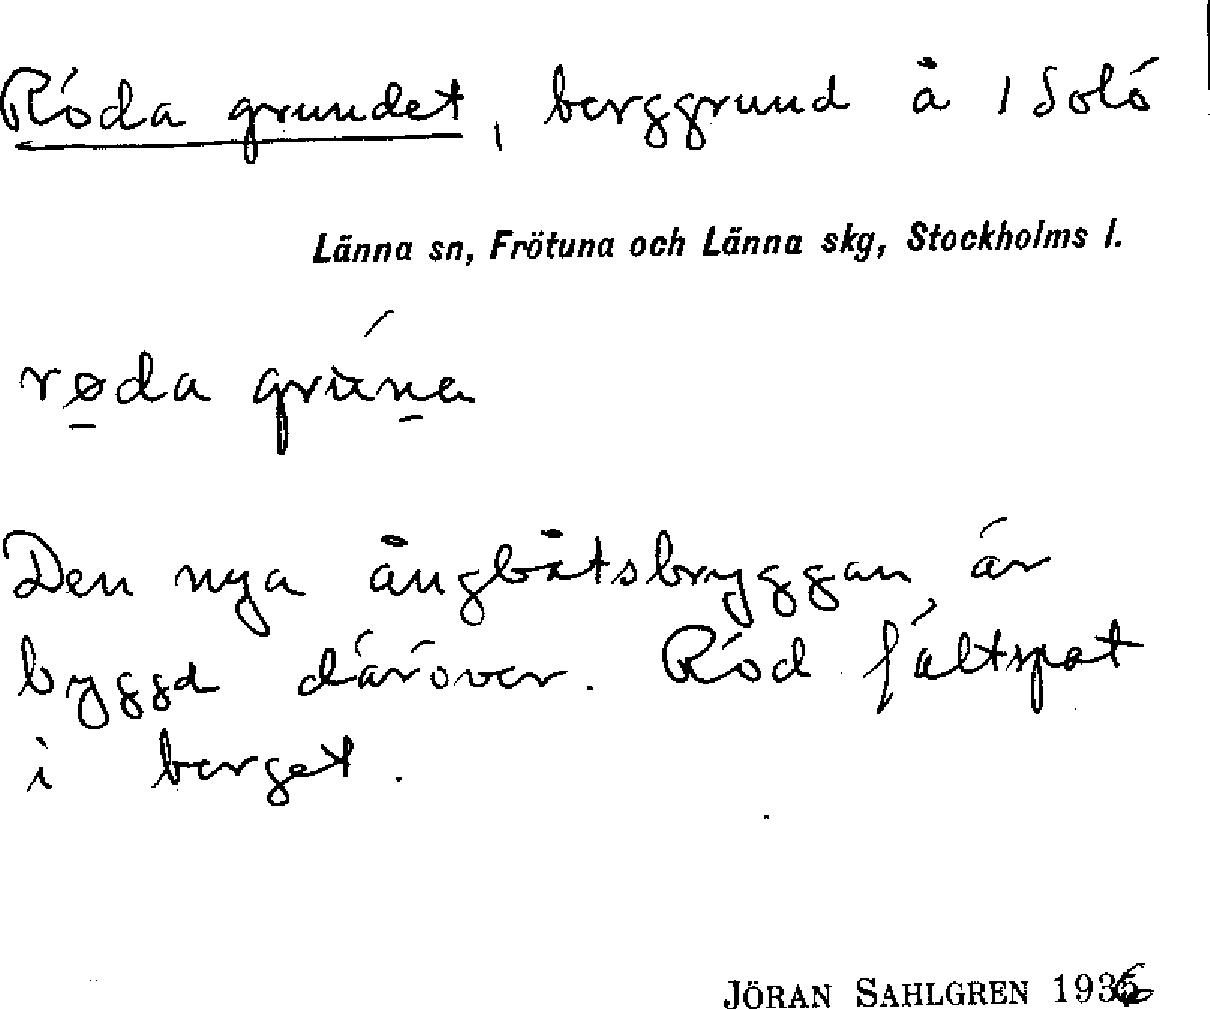 Röda grundet, berggrund å 1 Solö
Länna sn, Frötuna och Länna skg, Stockholms l.
røda grúna
Den nya ångbåtsbryggan är
byggd däröver. Röd fältspat
i berget.
JÖRAN SAHLGREN 1936